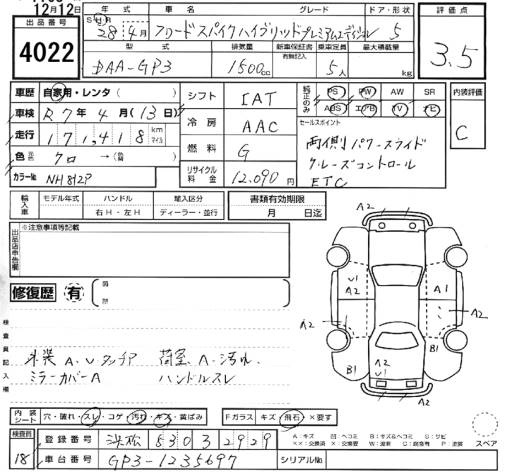 12月12日
出品番号
4022
年式 車名 グレード ドア・形状
SHR 28年4月 フリードスパイクハイブリッドプレミアムエディション 5
型式 排気量 新車保証書 有無記入 乗車定員 最大積載量
DAA-GP3 1500cc 5人 kg
評価点
3.5
車歴 自家用・レンタ ( )
車検 R7年4月(13日)
走行 171,418 km マイル
色 元色 クロ →(色替 )
カラーNo. NH812P
シフト IAT
冷房 AAC
燃料 G
リサイクル料金 12,090円
純正のみ PS PW AW SR
ABS エアB TV ナビ
セールスポイント
両側パワースライド
クルーズコントロール
ETC
内装評価
C
輸入車 モデル年式 ハンドル 輸入区分
右H・左H ディーラー・並行
書類有効期限
月 日迄
出品店申告欄 ※注意事項等記載
修復歴 有
検査員記入欄
外装A.Uタッチア 荷室A.汚れ
ミラーカバーA ハンドルスレ
A2
U1
A1
A2
A2
B1
B1
U1
A2
内装シート 穴・破れ・スレ・コゲ・汚れ・キズ・黄ばみ
Fガラス キズ・飛石・×要す
A:キズ
スペア
検査員
18
登録番号 浜松 530ミ2929
車台番号 GP3-1235697
シリアルNo.